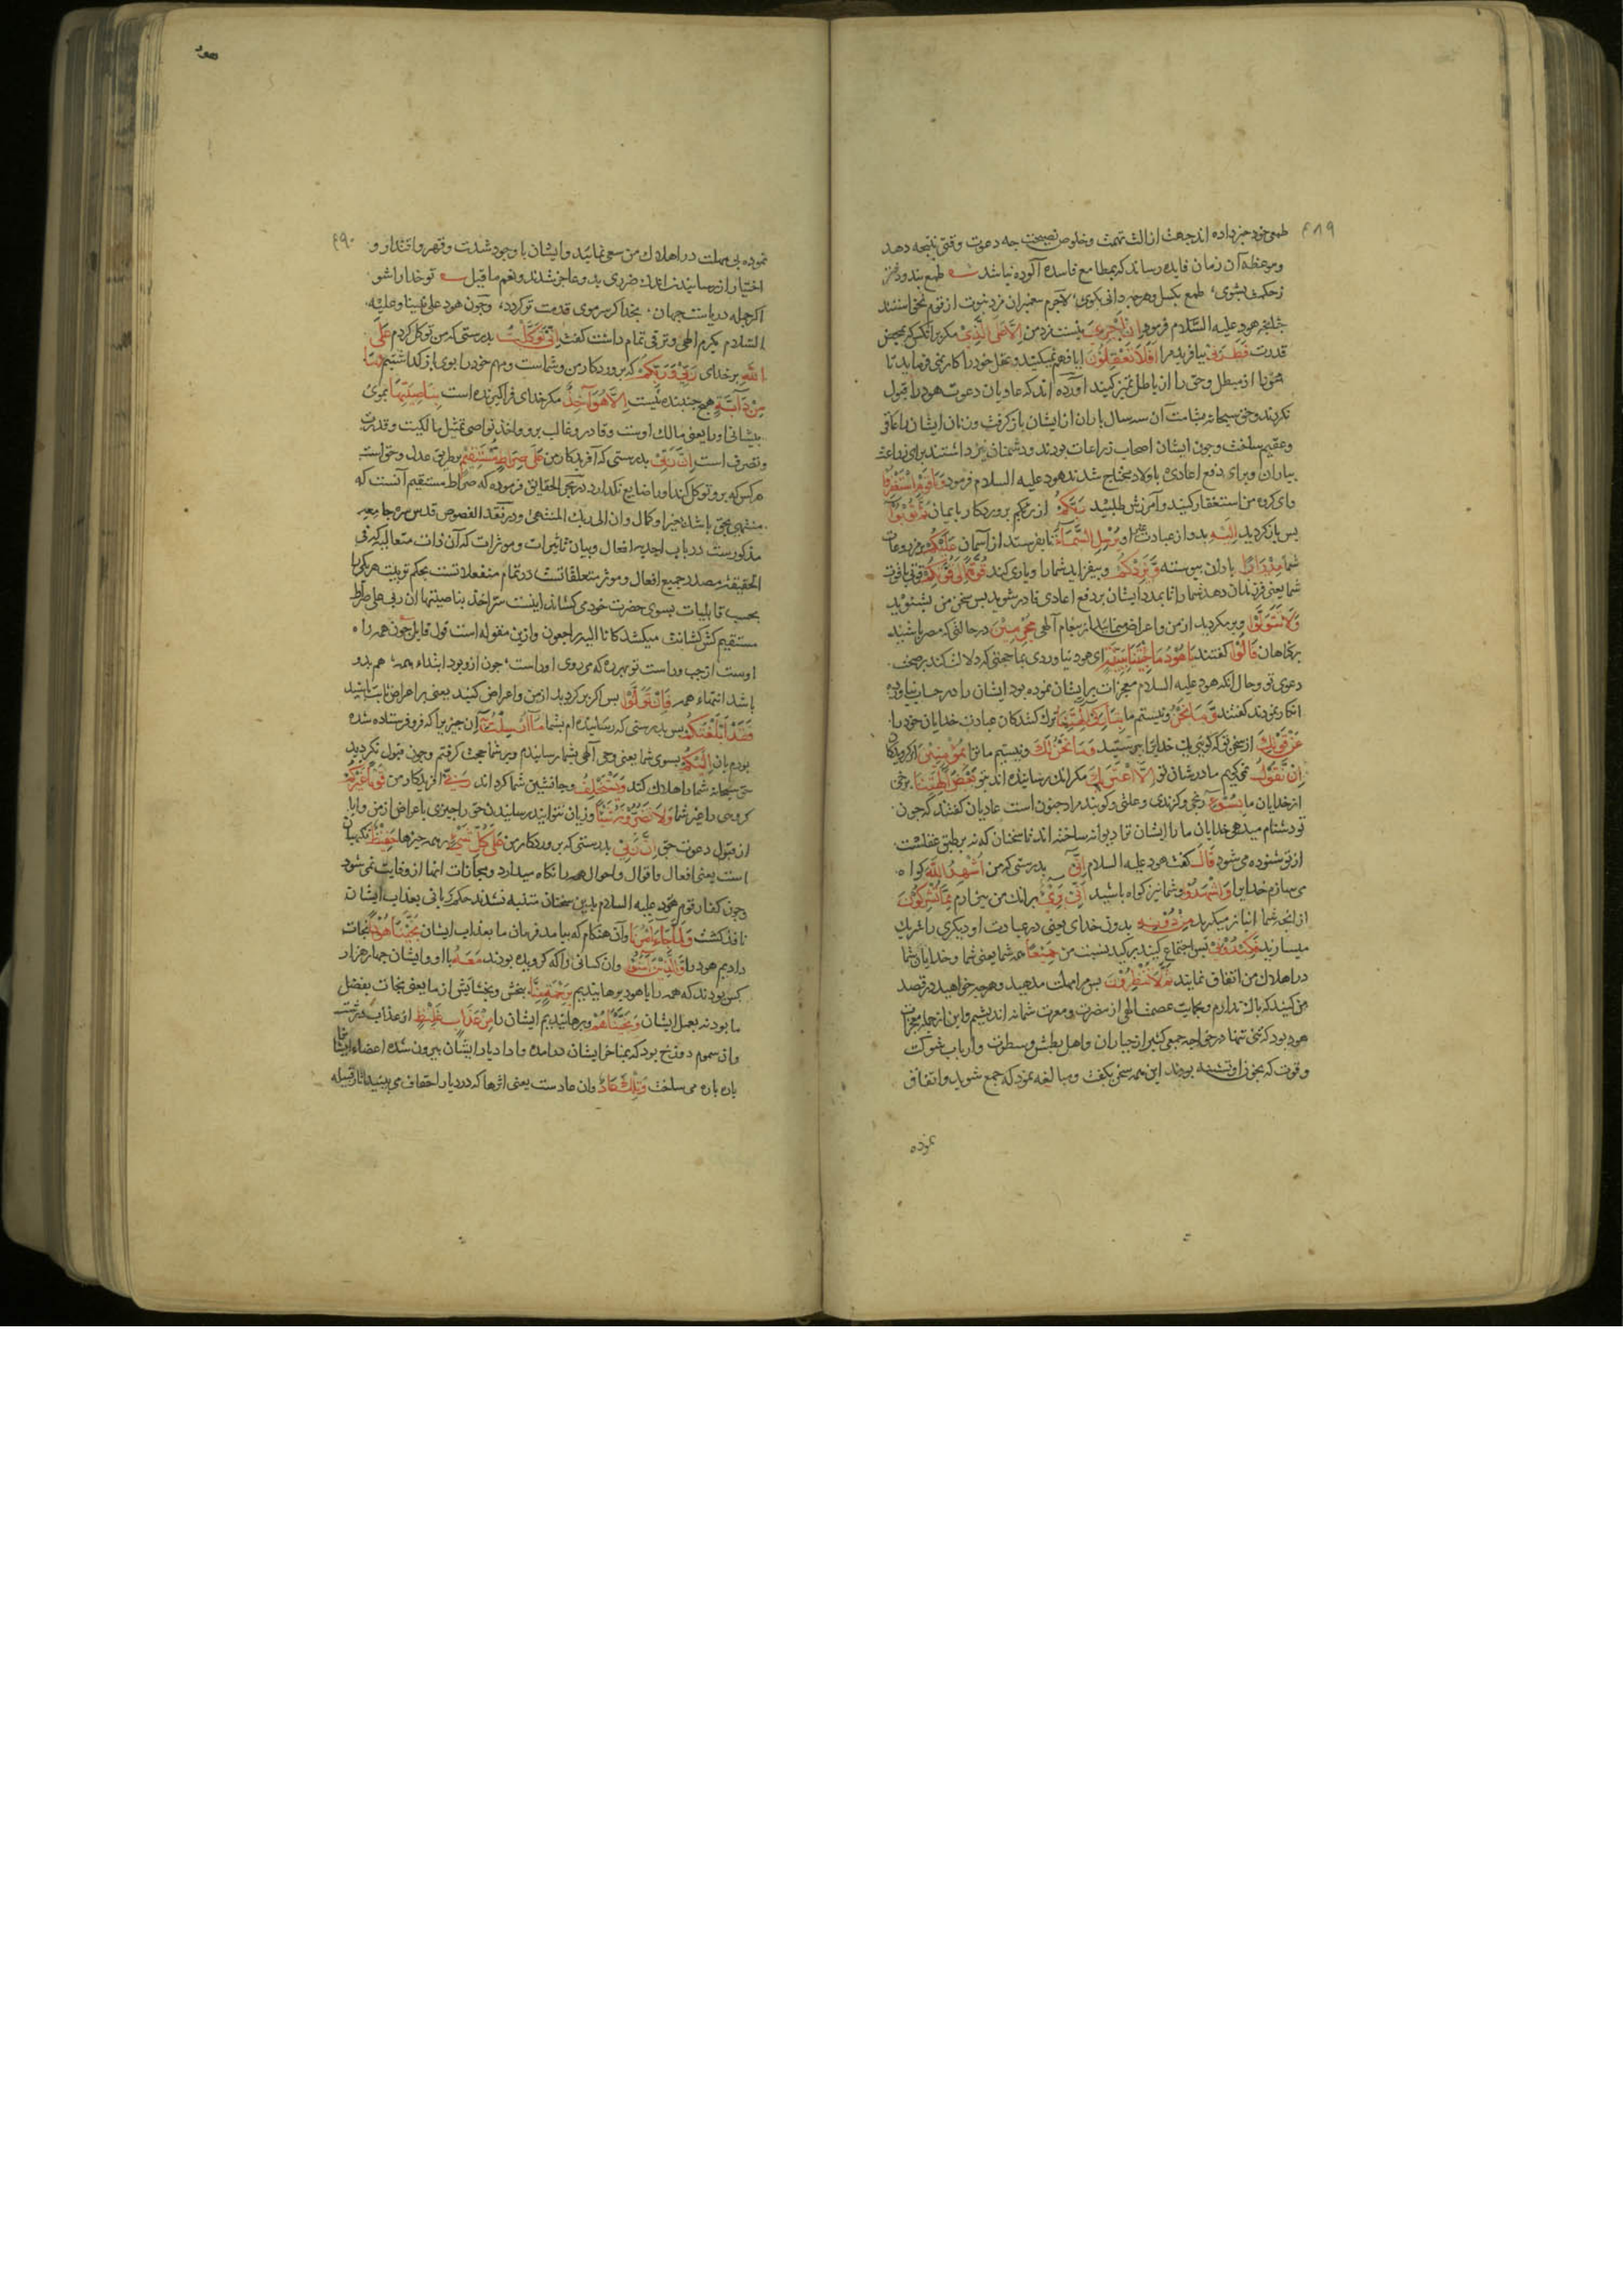 هود
۴۸۹
طمع خود خبر داده اند جهت ازالت تهمت وخلوص نصیحت چه دعوت وقتی نتیجه دهد
وموعظه آن زمان فایده رساند که بمطامع فاسده آلوده نباشد طمع بند و دفتر
ز حکمت بشوی، طمع بکسل وهرچه دانی بکوی، لاجرم پیغمبران مزد نبوت از قوم نمی خواستند
چنانچه هود علیه السلام فرمود إِنْ أَجْرِيَ نیست مزد من إِلَّا عَلَى الَّذِي مکر بر انکس که بمحض
قدرت فَطَرَنِي بیافرید مرا أَفَلَا تَعْقِلُونَ ایا فهم نمیکنید و عقل خود را کار نمی فرمایید تا
محق را از مبطل وحق را از باطل تمیز کنید آورده اند که عادیان دعوت هود را قبول
نکردند وحق سبحانه بشامت آن سه سال باران از ایشان باز کرفت وزنان ایشان را عاقر
وعقیم ساخت وچون ایشان اصحاب زراعات بودند ودشمنان نیز داشتند برای زراعت
بباران وبرای دفع اعادی باولاد محتاج شدند هود علیه السلام فرمود وَيَا قَوْمِ اسْتَغْفِرُوا
وای کروه من استغفار کنید وآمرزش طلبید رَبَّكُمْ از پروردکار بایمان ثُمَّ تُوبُوا
پس باز کردید إِلَيْهِ بدو از عبادت غیر او يُرْسِلِ السَّمَاءَ تا بفرستد از آسمان عَلَيْكُمْ بر مزروعات
شما مِدْرَارًا باران پیوسته وَيَزِدْكُمْ وبیفزاید شما را ویاری کند قُوَّةً إِلَى قُوَّتِكُمْ قوتی با قوت
شما یعنی فرزندان دهد شما را تا بمدد ایشان بر دفع اعادی قادر شوید پس سخن من بشنوید
وَلَا تَتَوَلَّوْا وبر مکردید از من واعراض منمایید از پیغام آلهی مُجْرِمِينَ در حالتی که مصر باشید
برکناهان قَالُوا کفتند يَا هُودُ مَا جِئْتَنَا بِبَيِّنَةٍ ای هود نیاوردی بما حجتی که دلالت کند بر صحت
دعوی تو وحال آنکه هود علیه السلام معجزات بر ایشان نموده بود ایشان را در حساب نیاورده
انکار نمودند کفتند وَمَا نَحْنُ ونیستیم ما بِتَارِكِي آلِهَتِنَا ترک کنندکان عبادت خدایان خود را
عَنْ قَوْلِكَ از سخن تو که کویی یک خدایرا بپرستید وَمَا نَحْنُ لَكَ ونیستیم ما ترا بِمُؤْمِنِينَ از کرویدکان
إِنْ نَقُولُ نمی کوییم ما در شان تو إِلَّا اعْتَرَاكَ مکر آنک رسانیده اند بتو بَعْضُ آلِهَتِنَا برخی
از خدایان ما بِسُوءٍ رنجی وکزندی وعلتی وکویند مراد جنون است عادیان کفتند که چون
تو دشنام میدهی خدایان ما را ایشان ترا دیوانه ساخته اند تا سخنان که نه بر طبق عقلست
از تو شنوده می شود قَالَ کفت هود علیه السلام إِنِّي بدرستی که من أُشْهِدُ اللَّهَ کواه
می سازم خدایرا وَاشْهَدُوا وشما نیز کواه باشید أَنِّي بَرِيءٌ بر آنک من بیزارم مِمَّا تُشْرِكُونَ
از آنچه شما انباز میکیرید مِنْ دُونِهِ بدون خدای یعنی در عبادت او دیکری را شریک
میسازید فَكِيدُونِي پس اجتماع کنید بر کید نسبت من جَمِيعًا همه شما یعنی شما وخدایان شما
در اهلاک من اتفاق نمایند ثُمَّ لَا تُنْظِرُونِ پس مرا مهلت مدهید وهرچه خواهید در قصد
من کنید که باک ندارم وبحمایت عصمت الهی از مضرت ومعرت شما نه اندیشم واین از جمله معجزات
هود بود که تنها در مواجهه جمعی کثیر از جباران واهل بطش وسطوت وارباب شوکت
وقوت که بخون او تشنه بودند این همه سخن بکفت ومبالغه نمود که جمع شوید واتفاق
نموده
۴۹۰
نموده بی مهلت در اهلاک من سعی نمائید وایشان با وجود شدت وقهر واقتدار و
اختیار از رسانیدن اندک ضرری بدو عاجز شدند ونعم ما قیل تو خدا را شو
اکر جمله دریاست جهان، بخدا کر سر موی قدمت تر کردد، وچون هود علی نبینا وعلیه
السلام بکرم الهی وثوقی تمام داشت کفت إِنِّي تَوَكَّلْتُ بدرستی که من توکل کردم عَلَى
اللَّهِ بر خدای رَبِّي وَرَبِّكُمْ که پروردکار من وشماست ومهم خود را بوی باز کذاشتم مَا
مِنْ دَابَّةٍ هیچ جنبنده نیست إِلَّا هُوَ آخِذٌ مکر خدای فراکیرنده است بِنَاصِيَتِهَا بموی
پیشانی او را یعنی مالک اوست وقادر وغالب برو واخذ نواصی تمثیل مالکیت وقدرت
وتصرف است إِنَّ رَبِّي بدرستی که آفریدکار من عَلَى صِرَاطٍ مُسْتَقِيمٍ بر طریق عدل وحق است
هر کس که برو توکل کند او را ضایع نکذارد در بحر الحقایق فرموده که صراط مستقیم آنست که
منتهی بحق باشد وان الی ربک المنتهی ودر نقد الفصوص قدس سره جامعه
مذکورست در باب احدیة افعال وبیان تاثیرات وموثرات که آن ذات متعالیه که فی
الحقیقة مصدر جمیع افعال وموثر متعلقاتست در تمام منفعلاتست بحکم تربیت هر یکی را
بحسب قابلیات بسوی حضرت خود می کشاند اینست سر اخذ بناصیتها ان ربی علی صراط
مستقیم کش کشانت میکشد کانا الیه راجعون وازین مقوله است قول قایل چون همه راه
اوست از چپ وراست تو بهر ره که میروی اوراست، چون ازو بود ابتداء همه، هم بدو
باشد انتهاء همه فَإِنْ تَوَلَّوْا پس اکر بر کردید از من واعراض کنید یعنی بر اعراض ثابت باشید
فَقَدْ أَبْلَغْتُكُمْ پس بدرستی که رسانیده ام بشما مَا أُرْسِلْتُ بِهِ آن چیزی را که فرو فرستاده شده
بودم بآن إِلَيْكُمْ بسوی شما یعنی وحی آلهی بشما رسانیدم وبر شما حجت کرفتم وچون قبول نکردید
حق سبحانه شما را هلاک کند وَيَسْتَخْلِفُ وجانشین شما کرداند رَبِّي آفریدکار من قَوْمًا غَيْرَكُمْ
کروهی را غیر شما وَلَا تَضُرُّونَهُ شَيْئًا وزیان نتوانید رسانیدن حق را چیزی باعراض از من وابا
از قبول دعوت حق إِنَّ رَبِّي بدرستی که پروردکار من عَلَى كُلِّ شَيْءٍ بر همه چیزها حَفِيظٌ نکهبان
است یعنی افعال واقوال واحوال همه را نکاه میدارد ومجازات آنها ازو فایت نمی شود
وچون کفار قوم هود علیه السلام بدین سخنان متنبه نشدند حکم ربانی بعذاب ایشان
نافذ کشت وَلَمَّا جَاءَ أَمْرُنَا وآن هنکام که بیامد فرمان ما بعذاب ایشان نَجَّيْنَا هُودًا نجات
دادیم هود را وَالَّذِينَ آمَنُوا وآن کسانی را که کرویده بودند مَعَهُ با او وایشان چهار هزار
کس بودند که همه را با هود برهانیدیم بِرَحْمَةٍ مِنَّا بخشش وبخشایش از ما یعنی نجات بفضل
ما بود نه بعمل ایشان وَنَجَّيْنَاهُمْ وبرهانیدیم ایشان را مِنْ عَذَابٍ غَلِيظٍ از عذاب درشت
وآن سموم دوزخ بود که بمناخر ایشان در آمده واز ادبار ایشان بیرون شده اعضاء ایشانرا
پاره پاره می ساخت وَتِلْكَ عَادٌ وآن عادست یعنی اثرها که در دیار احقاف می بینید آثار قبیله